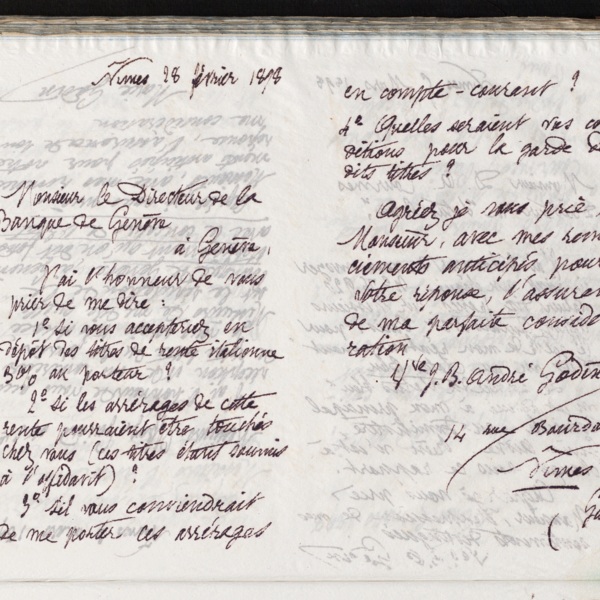 Nîmes 28 février 1898
Monsieur le Directeur de la
Banque de Genève
à Genève,
J'ai l'honneur de vous
prier de me dire :
1º si vous accepteriez en
dépôt des titres de rente italienne
3% au porteur ?
2º si les arrérages de cette
rente pourraient être touchés
chez vous (ces titres étant soumis
à l'affidavit) ?
3º s'il vous conviendrait
de me porter ces arrérages
en compte-courant ?
4º Quelles seraient vos co
ditions pour la garde d
dits titres ?
Agréez je vous prie
Monsieur, avec mes rem
ciements anticipés pour
votre réponse, l'assuran
de ma parfaite consid
ration
Vve J. B. André Godin
14 rue Bourda
Nîmes
(Ga